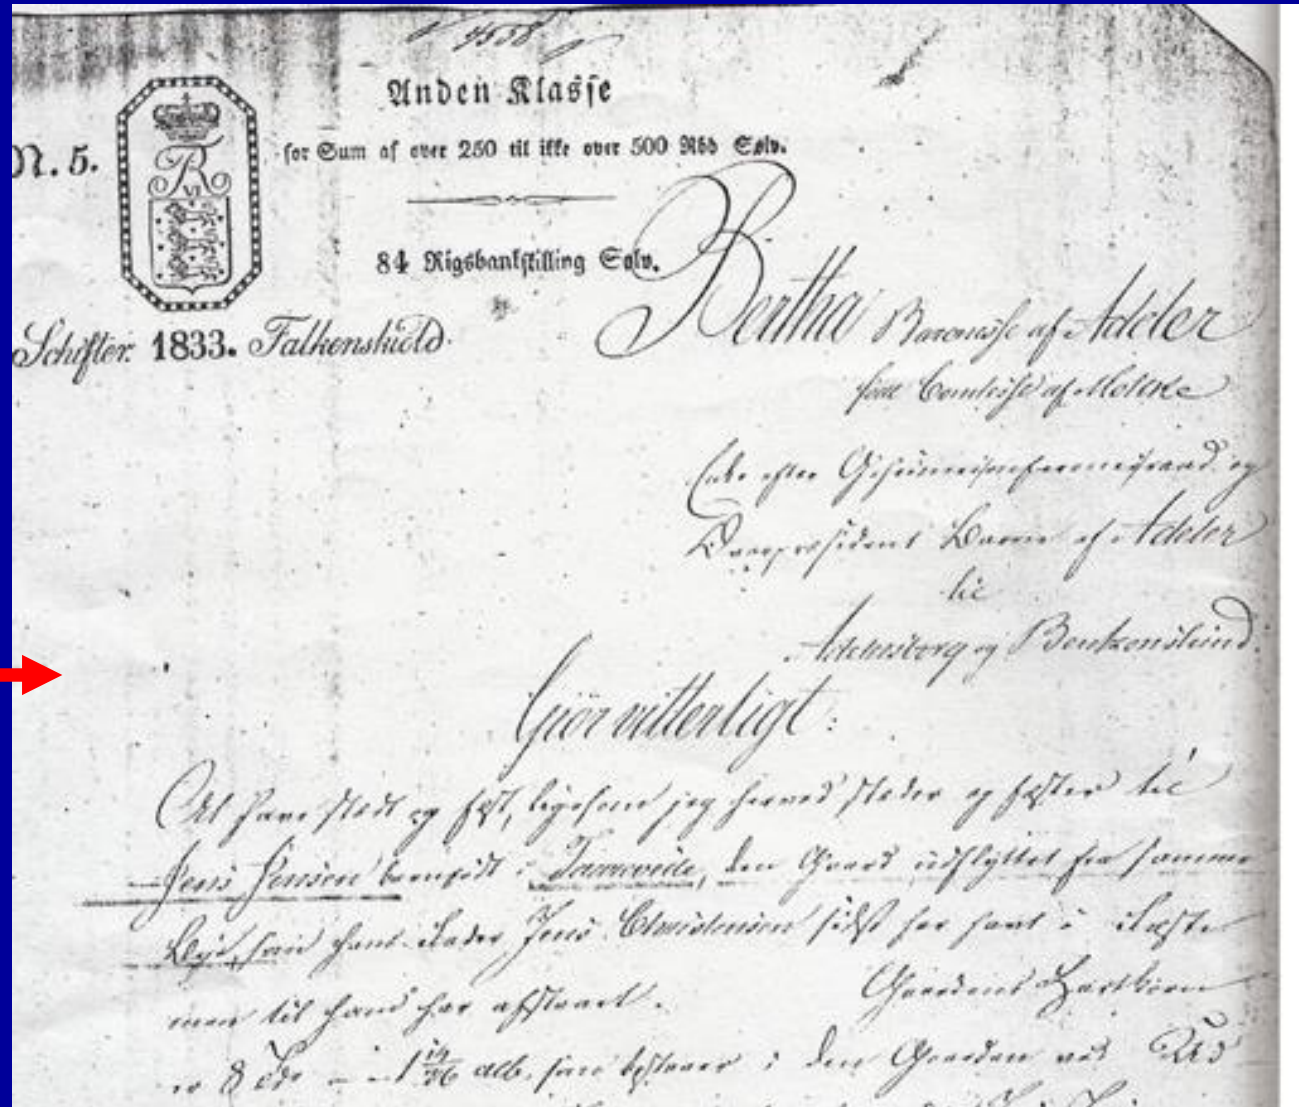 4558
Anden Klasse
N. 5.
for Sum af over 250 til ikke over 500 Rbd Sølv.
FR
VI
84 Rigsbankskilling Sølv.
Schifter. 1833. Falkenskiold.
Bertha Baronesse af Adeler
født Comtesse af Moltke
Enke efter Geheimeconferenceraad og
Baron af Adeler
til
Adelersborg og Benzonslund.
Gjør vitterligt:
At have stedt og fæst, ligesom jeg herved steder og fæster til
Jens Jensen barnfødt i den Gaard udflyttet fra samme
Bye, som hans Fader Jens Christensen sidst har havt i Fæste
men til ham har afstaaet. Gaardens Hartkorn
er 8 Tdr 1 alb. som bestaaer i den Gaarden ved